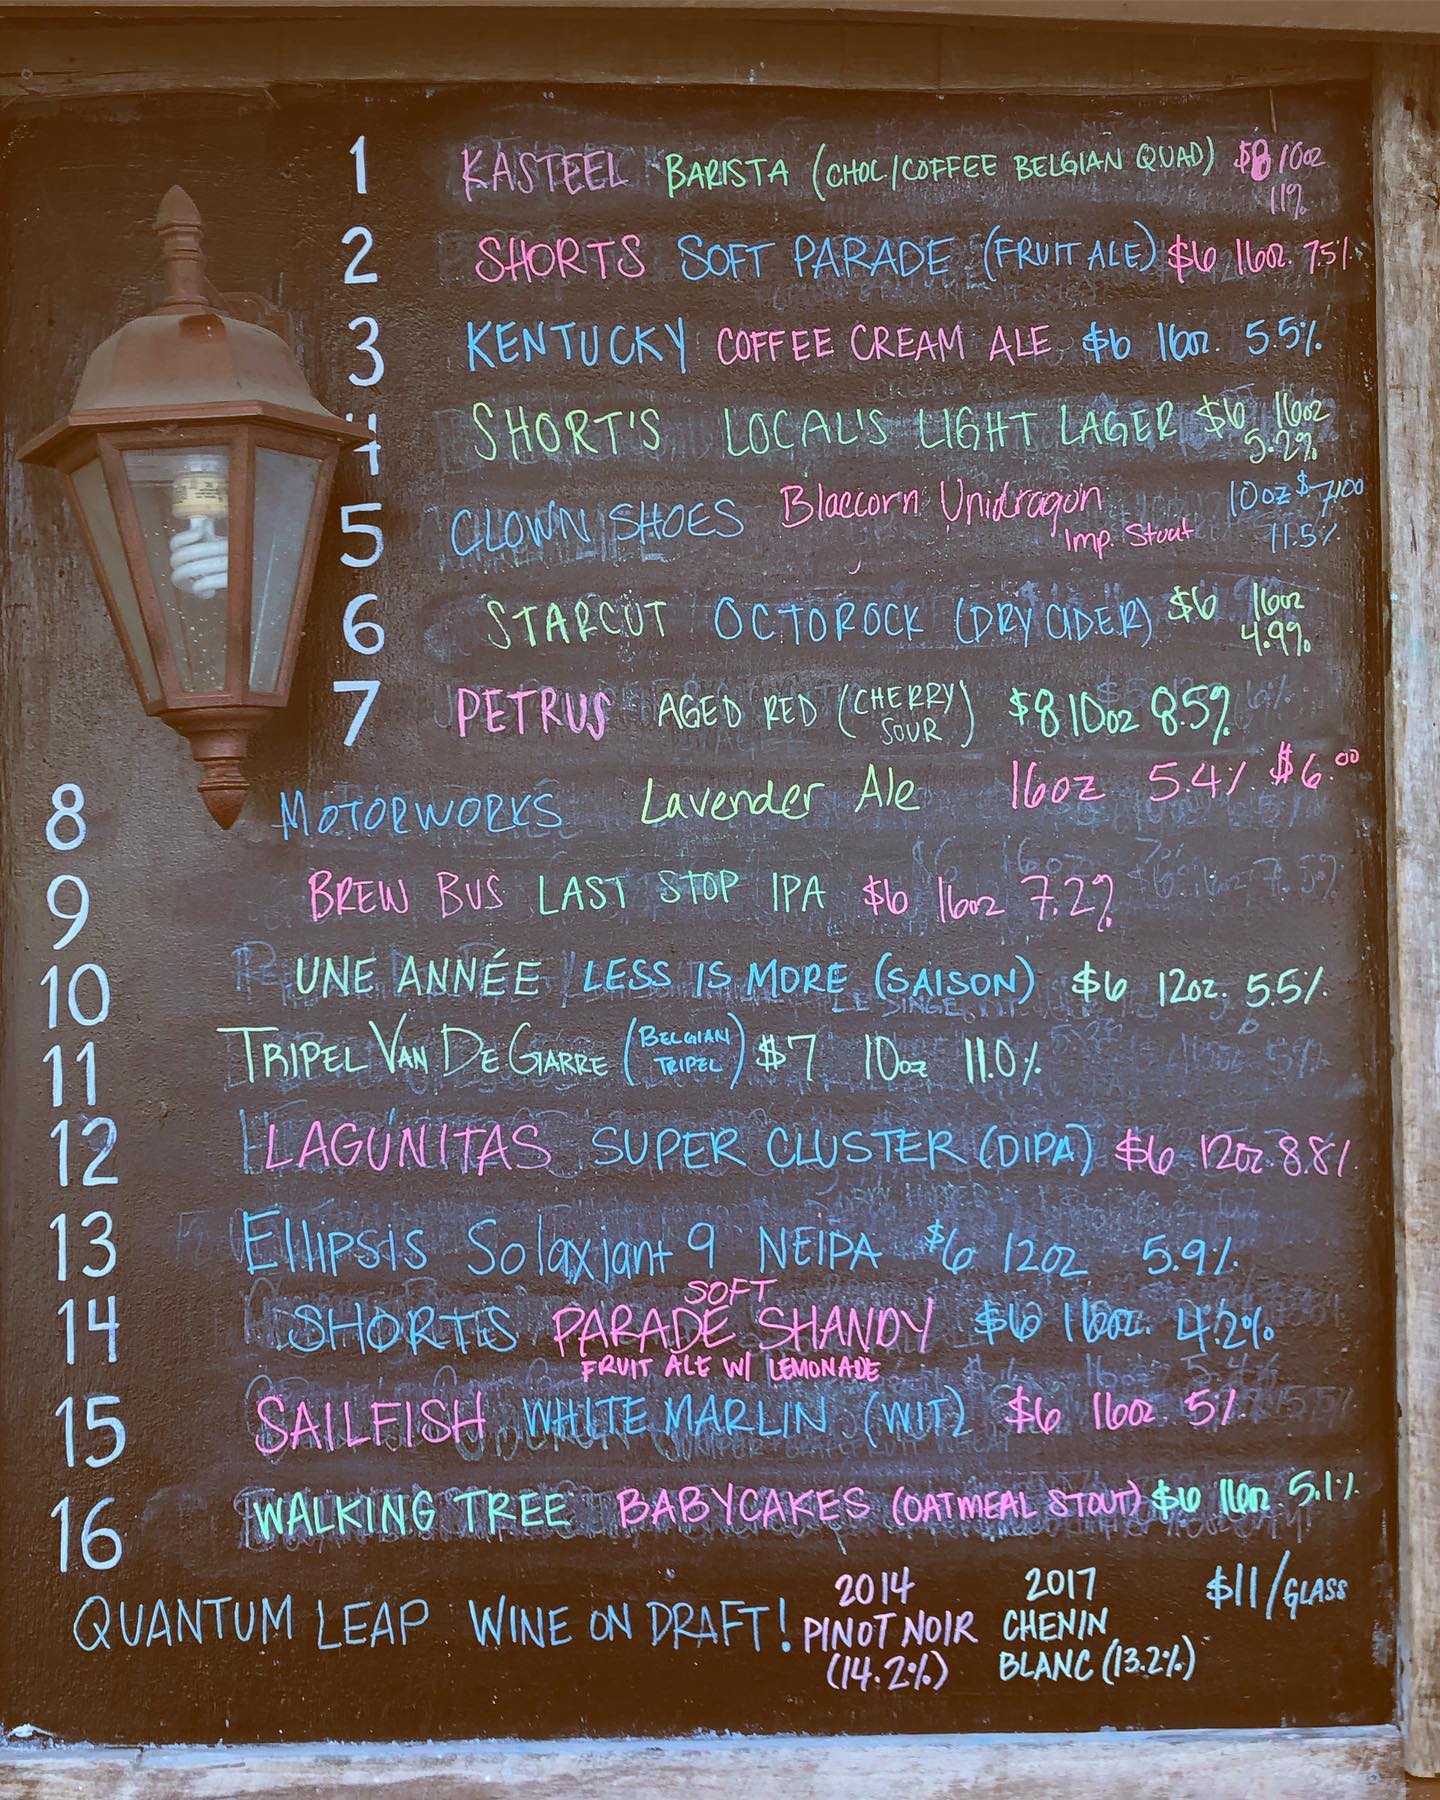 1 KASTEEL BARISTA (CHOL/COFFEE BELGIAN QUAD) $8 10oz
11%
2 SHORTS SOFT PARADE (FRUIT ALE) $6 16oz. 7.5%
3 KENTUCKY COFFEE CREAM ALE $6 16oz. 5.5%
4 SHORT'S LOCAL'S LIGHT LAGER $6 16oz
5.2%
5 CLOWN SHOES Blaecorn Unidragon 10oz $7.00
Imp. Stout 11.5%
6 STARCUT OCTOROCK (DRY CIDER) $6 16oz
4.9%
7 PETRUS AGED RED (CHERRY $8 10oz 8.5%
SOUR)
8 MOTORWORKS Lavender Ale 16oz 5.4% $6.00
9 BREW BUS LAST STOP IPA $6 16oz 7.2%
10 UNE ANNÉE LESS IS MORE (SAISON) $6 12oz. 5.5%
11 TRIPEL VAN DE GARRE (BELGIAN $7 10oz 11.0%
TRIPEL)
12 LAGUNITAS SUPER CLUSTER (DIPA) $6 12oz. 8.8%
13 Ellipsis Solaxiant 9 NEIPA $6 12oz 5.9%
SOFT
14 SHORTS PARADE SHANDY $6 16oz. 4.2%
FRUIT ALE W/ LEMONADE
15 SAILFISH WHITE MARLIN (WIT) $6 16oz. 5%
16 WALKING TREE BABYCAKES (OATMEAL STOUT) $6 16oz. 5.1%
QUANTUM LEAP WINE ON DRAFT!
2014
PINOT NOIR
(14.2%)
2017
CHENIN
BLANC (13.2%)
$11/GLASS